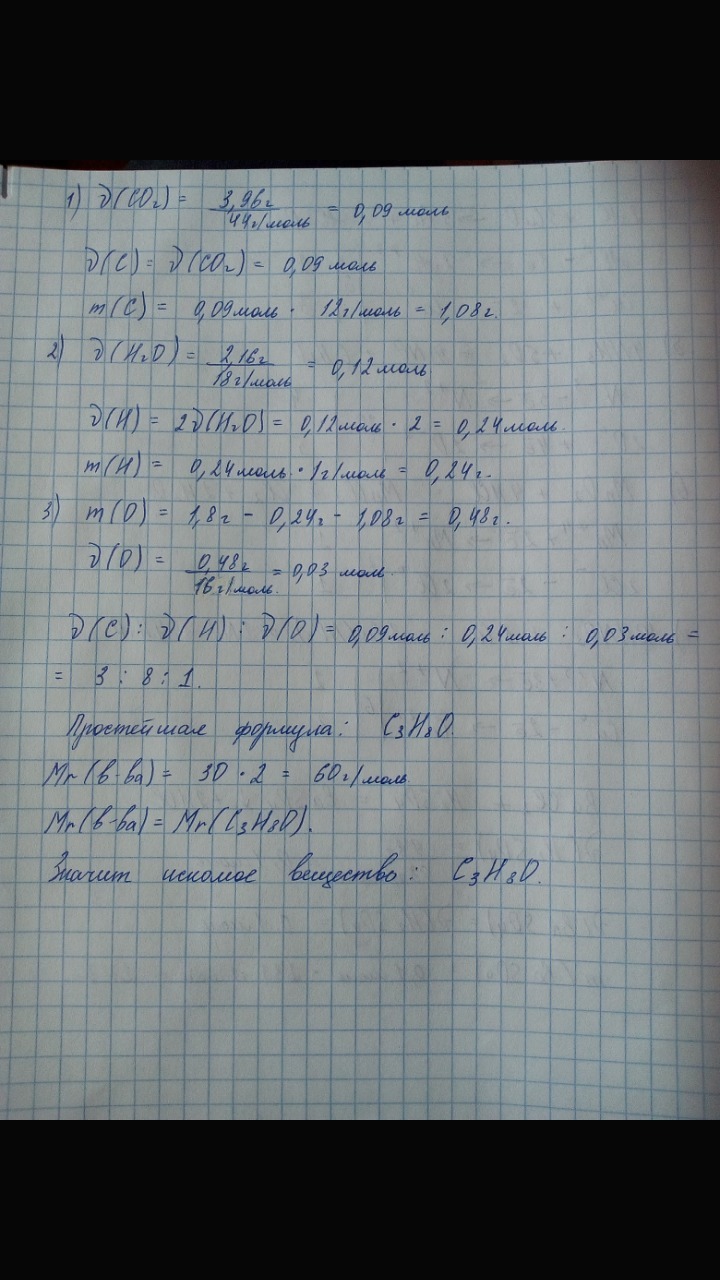 1) ν(CO₂) = 3,96г / 44г/моль = 0,09 моль
ν(C) = ν(CO₂) = 0,09 моль
m(C) = 0,09моль · 12г/моль = 1,08г.
2) ν(H₂O) = 2,16г / 18г/моль = 0,12моль
ν(H) = 2ν(H₂O) = 0,12моль · 2 = 0,24моль.
m(H) = 0,24моль · 1г/моль = 0,24г.
3) m(O) = 1,8г - 0,24г - 1,08г = 0,48г.
ν(O) = 0,48г / 16г/моль. = 0,03 моль.
ν(C) : ν(H) : ν(O) = 0,09моль : 0,24моль : 0,03моль =
= 3 : 8 : 1.
Простейшая формула: C₃H₈O.
Mr(в-ва) = 30 · 2 = 60г/моль.
Mr(в-ва) = Mr(C₃H₈O).
Значит искомое вещество: C₃H₈O.